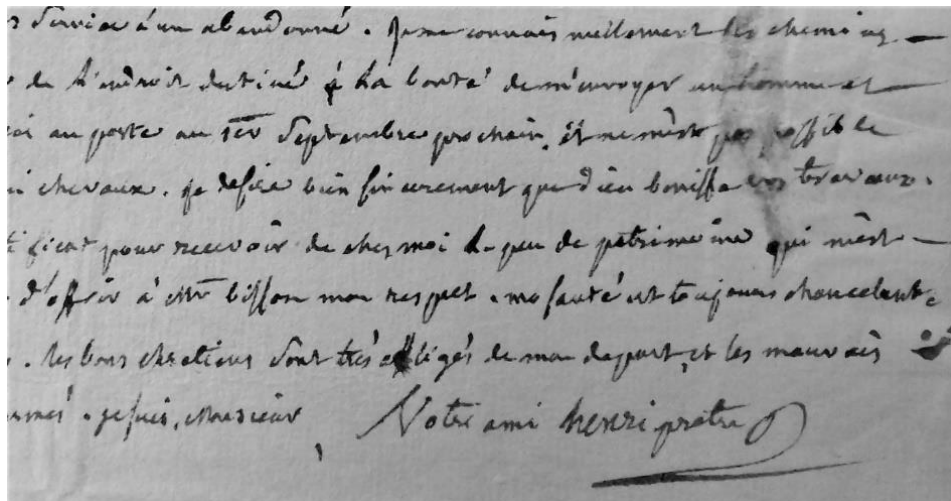 service à un abandonné. je ne connais nullement les chemins
de l'endroit destiné à la bonté de m'envoyer un homme et
au poste au 1er septembre prochain, il ne m'est pas possible
chevaux. je desire bien sincerement que dieu benisse vos travaux.
pour recevoir de chez moi le peu de patrimoine qui m'est
d'offrir à mr bisson mon respet. ma santé est toujours chancelante
les bons chretiens sont très de mon depart, et les mauvais
je suis, monsieur Votre ami henri pretre